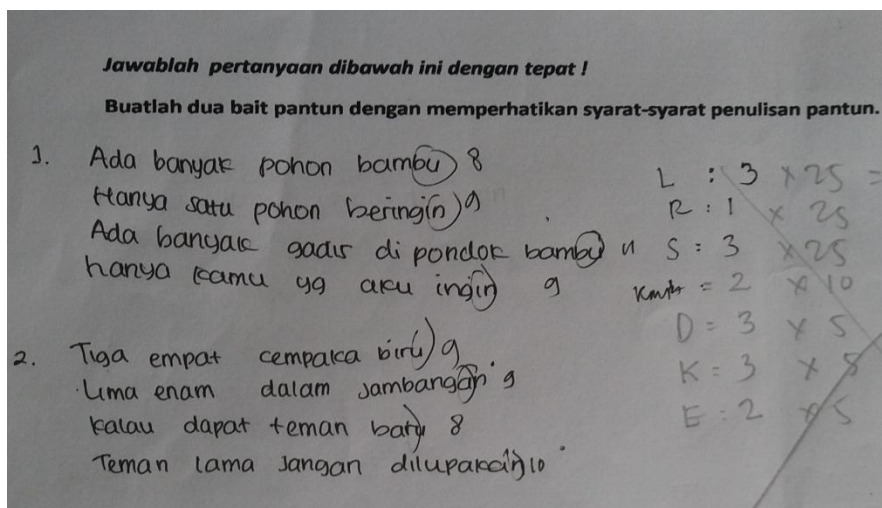 Jawablah pertanyaan dibawah ini dengan tepat !
Buatlah dua bait pantun dengan memperhatikan syarat-syarat penulisan pantun.
1. Ada banyak pohon bambu 8
Hanya satu pohon beringin 9
Ada banyak gadis di pondok bambu 11
hanya kamu yg aku ingin 9
2. Tiga empat cempaka biru 9
Lima enam dalam jambangan 9
Kalau dapat teman baru 8
Teman lama jangan dilupakan 10
L : 3 x 25 =
R : 1 x 25
S = 3 x 25
= 2 x 10
D = 3 x 5
K = 3 x 8
E : 2 x 5